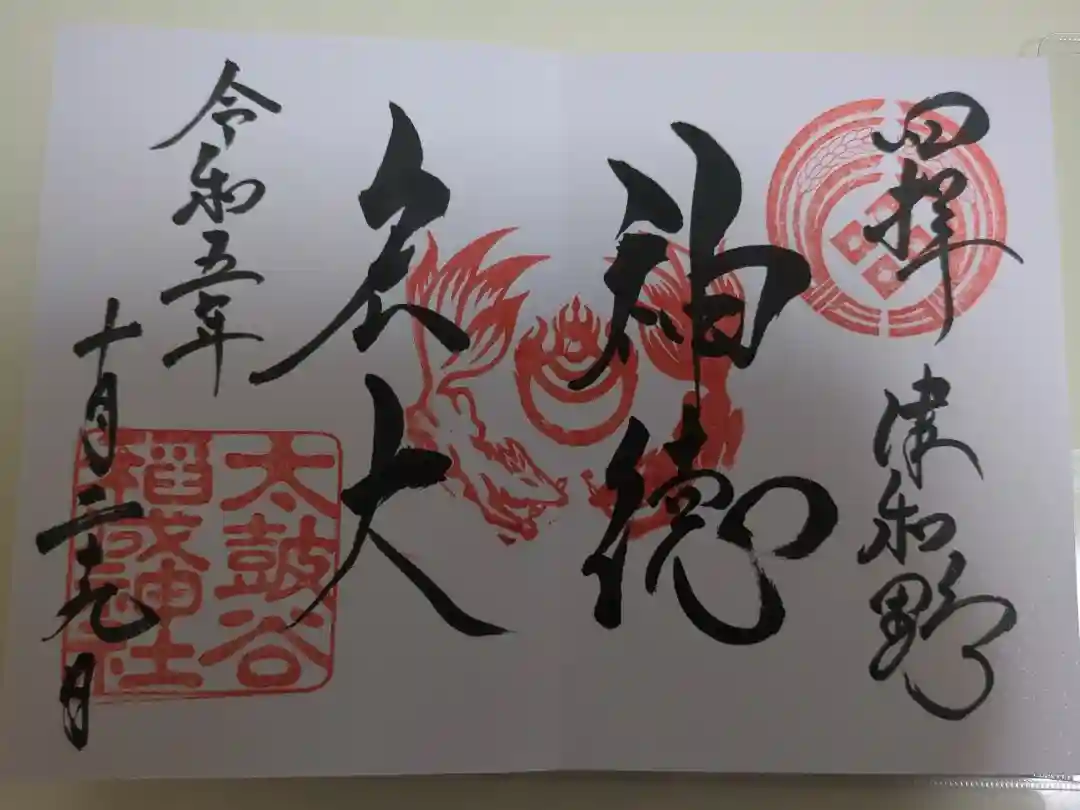 四拝
津和野
神徳
大
令和五年
十月二十九日
太鼓谷
稲成神社